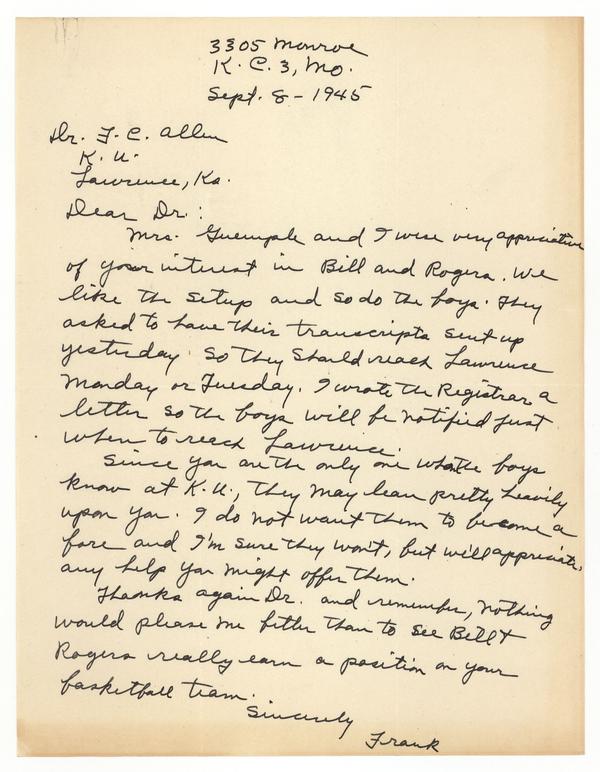 3305 Monroe
K. C. 3, Mo.
Sept. 8 - 1945
Dr. F. C. Allen
K. U.
Lawrence, Ka.
Dear Dr.:
Mrs. Guemple and I were very appreciative
of your interest in Bill and Rogers. We
like the setup and so do the boys. They
asked to have their transcripts sent up
yesterday. So they should reach Lawrence
Monday or Tuesday. I wrote the Registrar a
letter so the boys will be notified just
when to reach Lawrence.
Since you are the only one the boys
know at K.U., they may lean pretty heavily
upon you. I do not want them to become a
bore and I'm sure they won't, but will appreciate
any help you might offer them.
Thanks again Dr. and remember, nothing
would please me better than to see Bill &
Rogers really earn a position on your
basketball team.
Sincerely
Frank